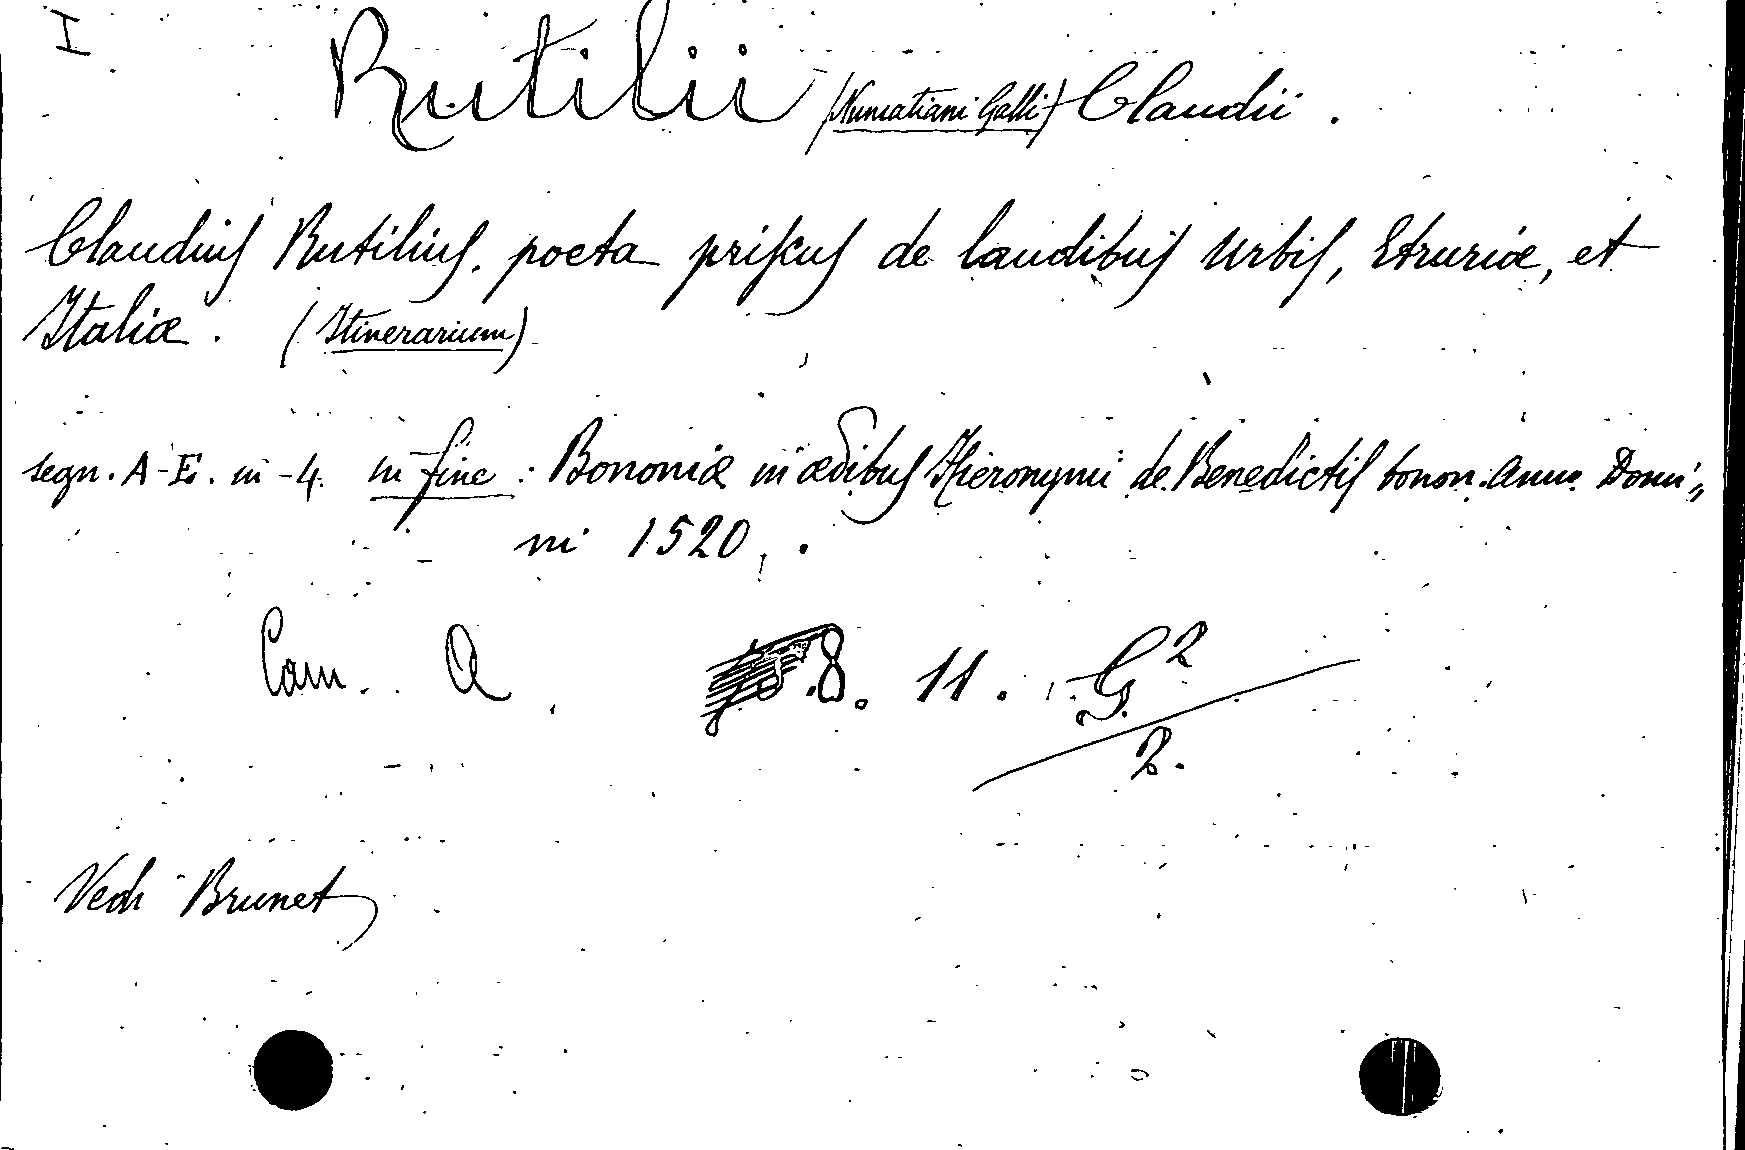 I
Rutilii (Numatiani Galli) Claudii.
Claudius Rutilius. poeta priſcus de laudibus Urbis, Etruriæ, et
Italiæ. (Itinerarium)
segn. A-E. in-4. in fine: Bononiæ in ædibus Hieronymi de Benedictis bonon. Anno Domi„
ni 1520.
Cam. A 8. 11. G²
2.
Vedi Brunet